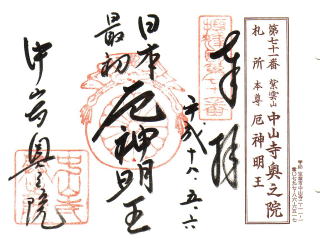 第七十一番 紫雲山 中山寺奥之院
札所 本尊 厄神明王
奉拝
平成十八、五、六
日本
最初
厄神明王
中山寺奥之院